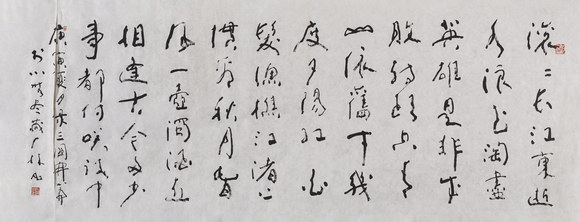 滚〻长江東逝
水浪花淘盡
英雄是非成
敗转頭空青
山依舊在幾
度夕陽红白
髮渔樵江渚上
惯看秋月春
风一壶濁酒喜
相逢古今多少
事都付笑谈中
庚寅夏夕录三國开篇